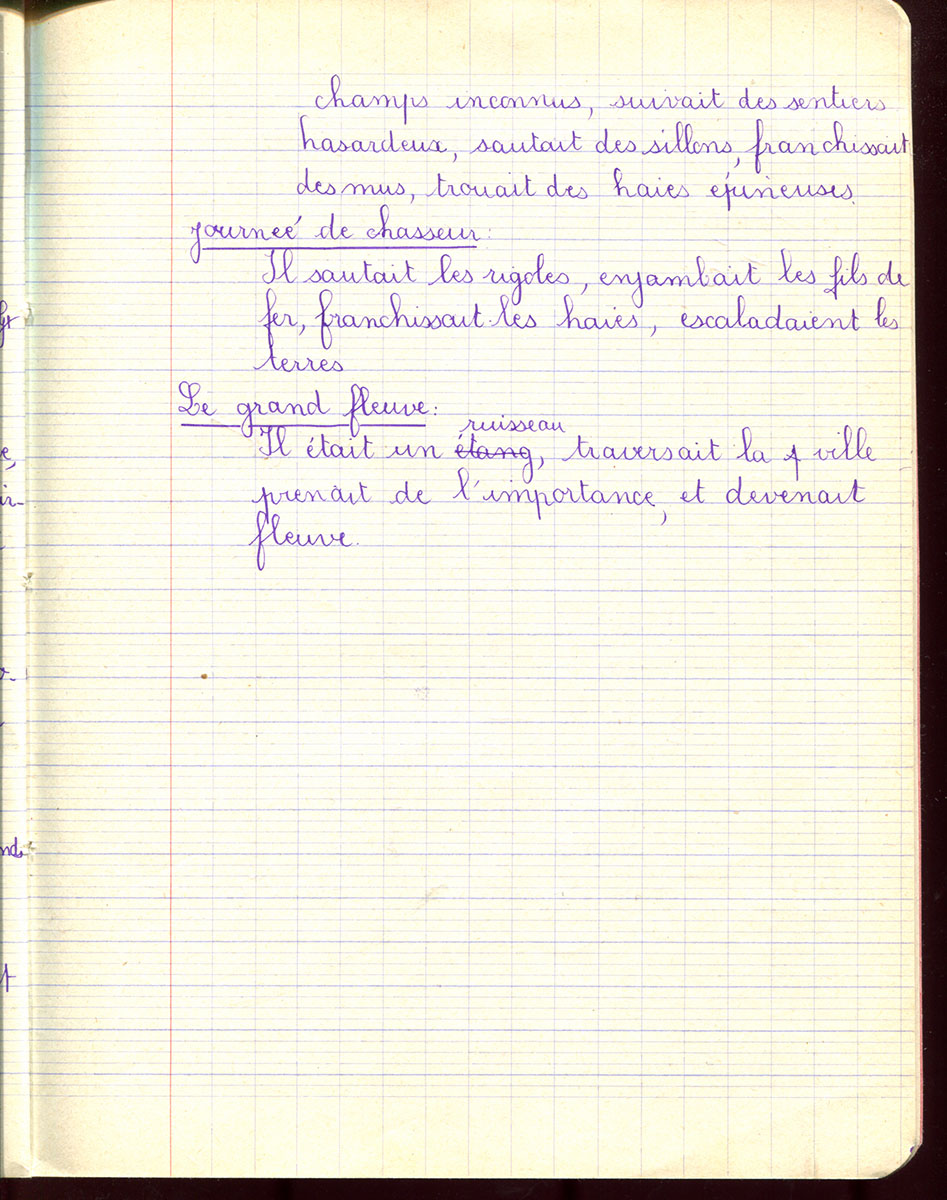 champs inconnus, suivait des sentiers
hasardeux, sautait des sillons, franchissait
des mus, trouait des haies épineuses.
journeé de chasseur:
Il sautait les rigoles, enjambait les fils de
fer, franchissait les haies, escaladaient les
terres
Le grand fleuve:
ruisseau
Il était un étang, traversait la ville
prenait de l'importance, et devenait
fleuve.